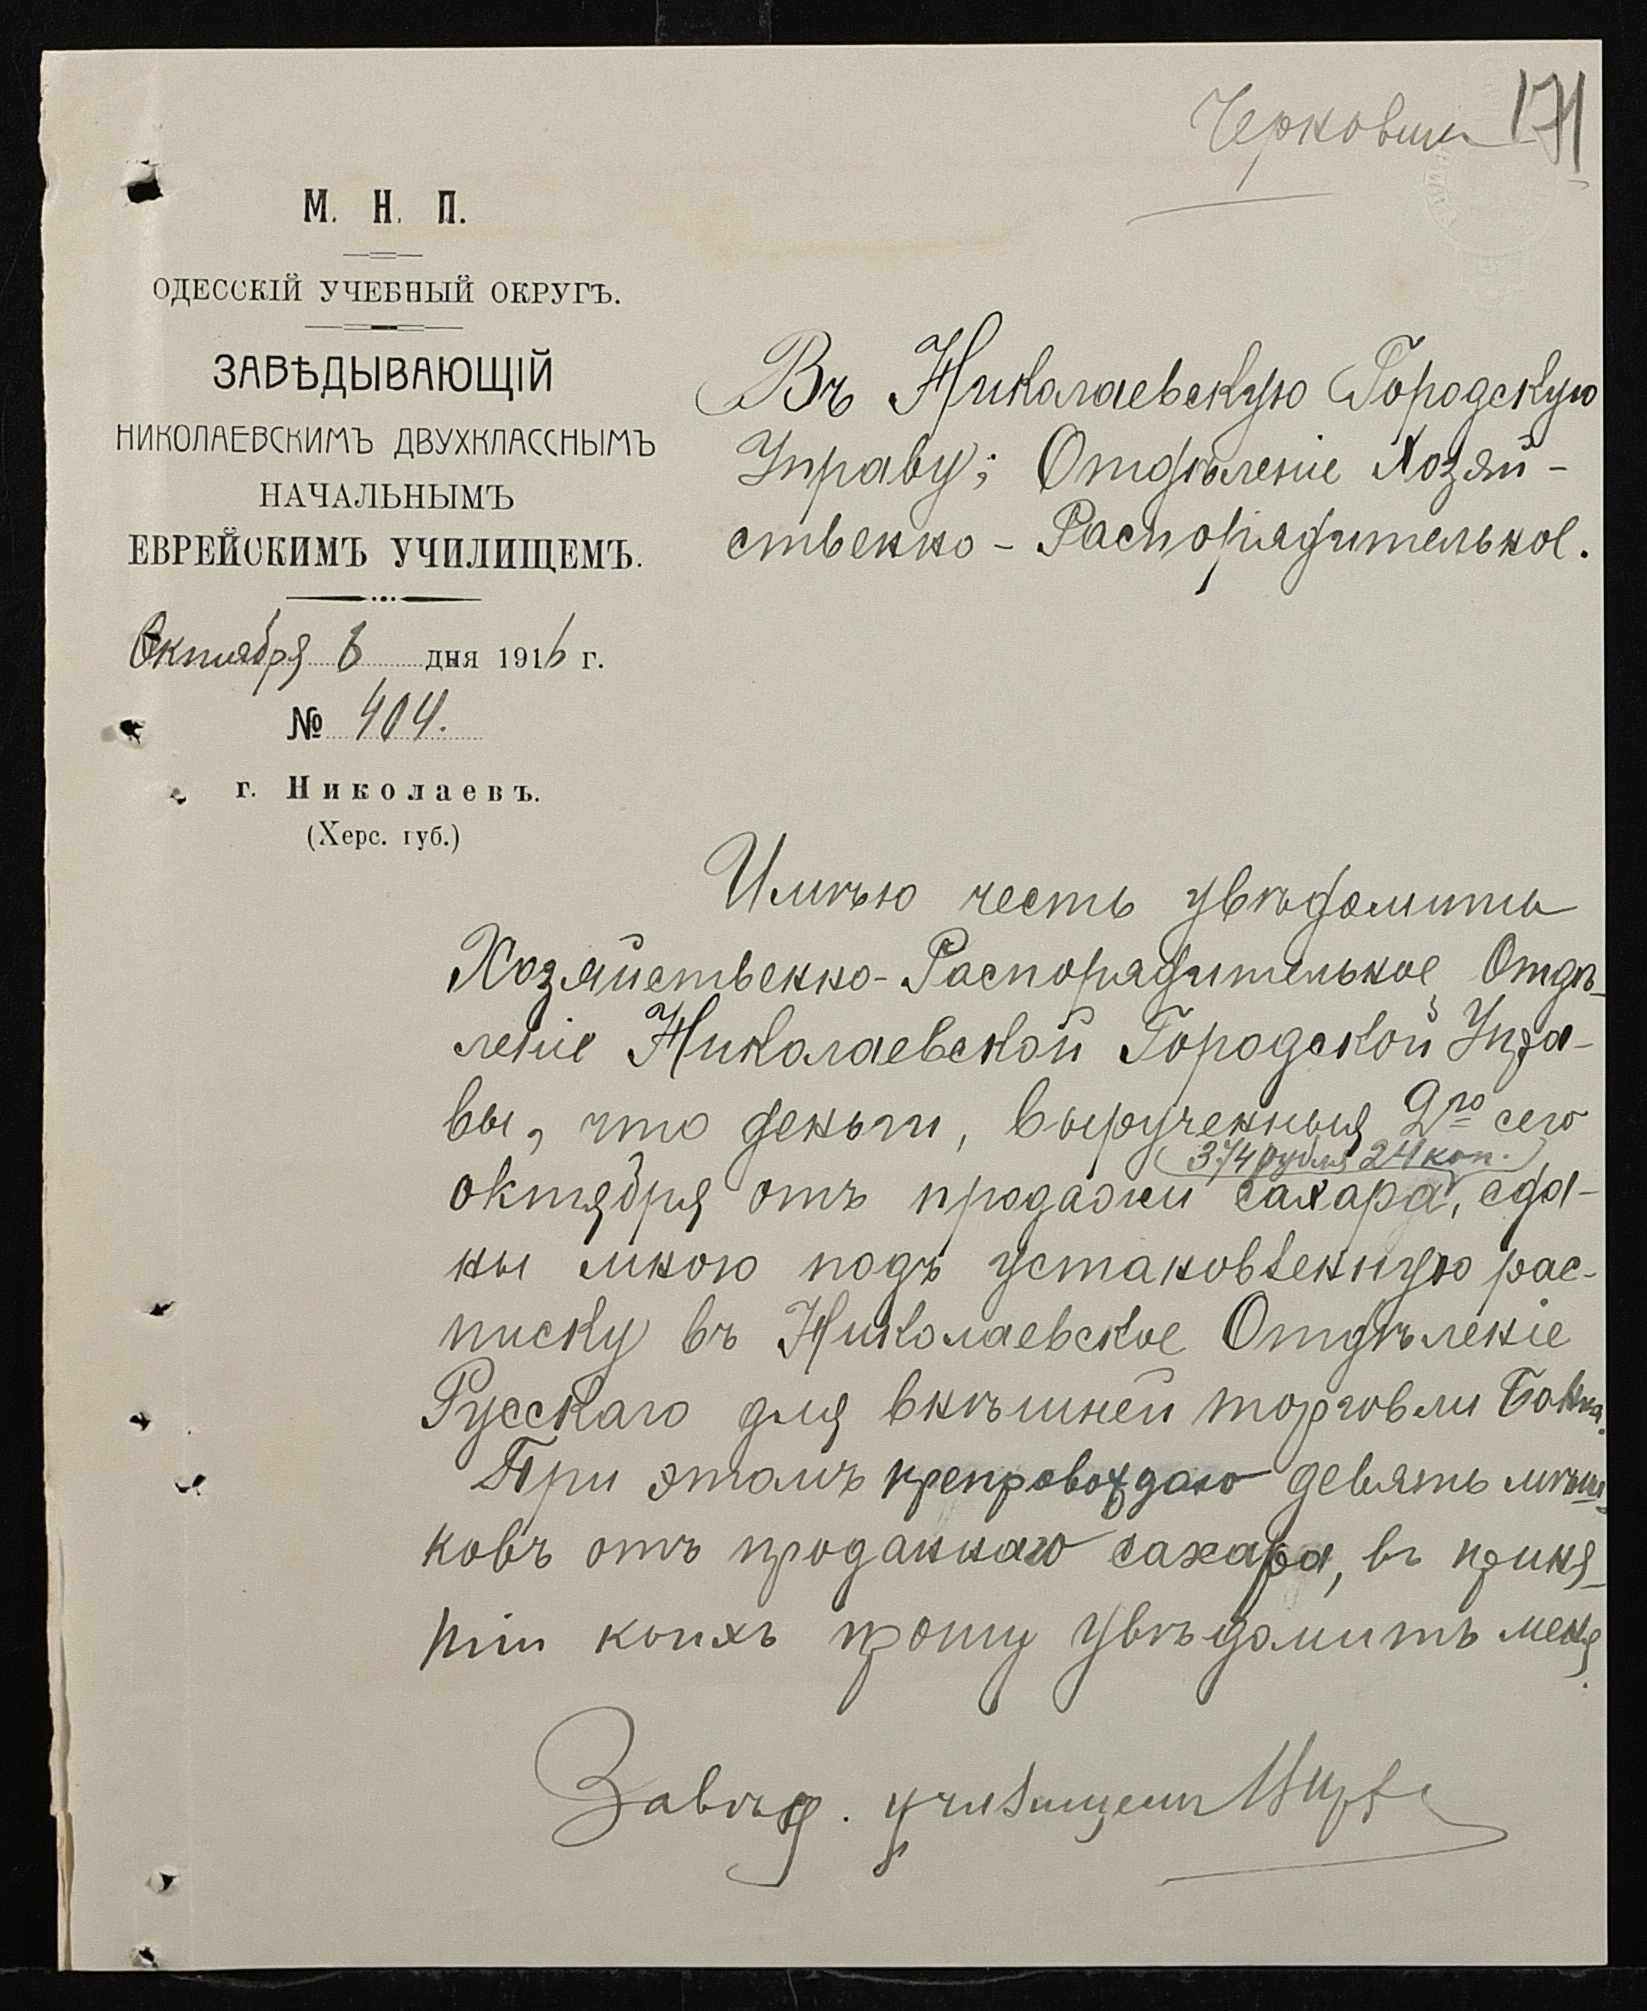 171
М. Н. П.
ОДЕССКІЙ УЧЕБНЫЙ ОКРУГЪ.
ЗАВѢДЫВАЮЩІЙ
НИКОЛАЕВСКИМЪ ДВУХКЛАССНЫМЪ
НАЧАЛЬНЫМЪ
ЕВРЕЙСКИМЪ УЧИЛИЩЕМЪ.
Октября 6 дня 1916 г.
№ 404.
г. Николаевъ.
(Херс. губ.)
Въ Николаевскую Городскую
Управу; Отдѣленіе Хозяй-
ственно-Распорядительное.
Имѣю честь увѣдомить
Хозяйственно-Распорядительное Отдѣ-
леніе Николаевской Городской Упра-
вы, что деньги, вырученныя 2го сего
(374 рубля 24 коп.)
октября отъ продажи сахара, сда-
ны мною подъ установленную рас-
писку въ Николаевское Отдѣленіе
Русскаго для внѣшней торговли Банка.
При этомъ препровождаю девять мѣш-
ковъ отъ проданнаго сахара, въ приня-
тіи коихъ прошу увѣдомить меня.
Завѣд. училищемъ